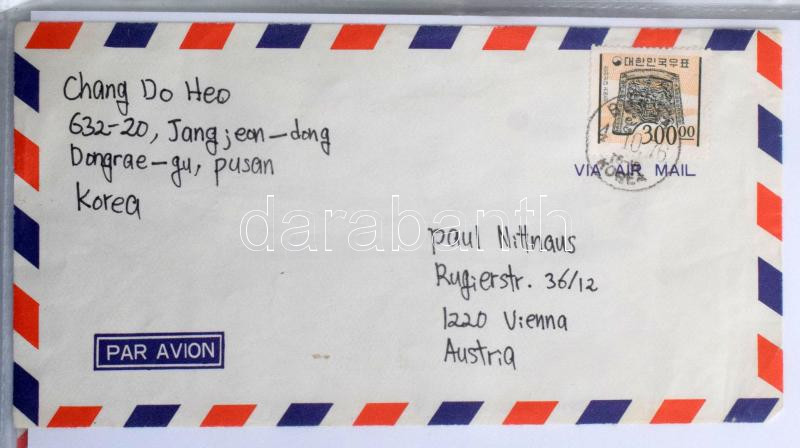 Chang Do Heo
632-20, Jangjeon-dong
Dongrae-gu, pusan
Korea
대한민국우표
300.00
10.76
KOREA
VIA AIR MAIL
darabanth
paul Nittnaus
Rugierstr. 36/12
1220 Vienna
Austria
PAR AVION